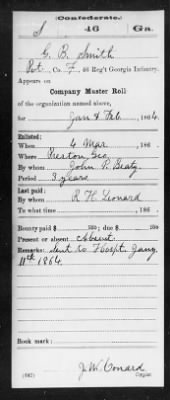 (Confederate.)
S 46 Ga.
G. B. Smith
Pvt, Co. F, 46 Reg't Georgia Infantry.
Appears on
Company Muster Roll
of the organization named above,
for Jan & Feb, 1864.
Enlisted:
When 4 Mar, 186 .
Where Preston Geo
By whom John P. Beaty
Period 3 years
Last paid:
By whom R H Leonard
To what time , 186 .
Bounty paid $ 100; due $ 100
Present or absent Absent.
Remarks: Sent to Hospt. Jany.
11th 1864
Book mark:
J W Conard
(642) Copyist.